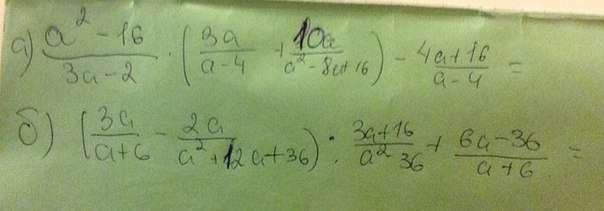 а) (a² - 16)/(3a - 2) · (3a/(a - 4) + 10a/(a² - 8a + 16)) - (4a + 16)/(a - 4) =
б) (3a/(a + 6) - 2a/(a² + 12a + 36)) : (3a + 16)/(a² 36) + (6a - 36)/(a + 6) =